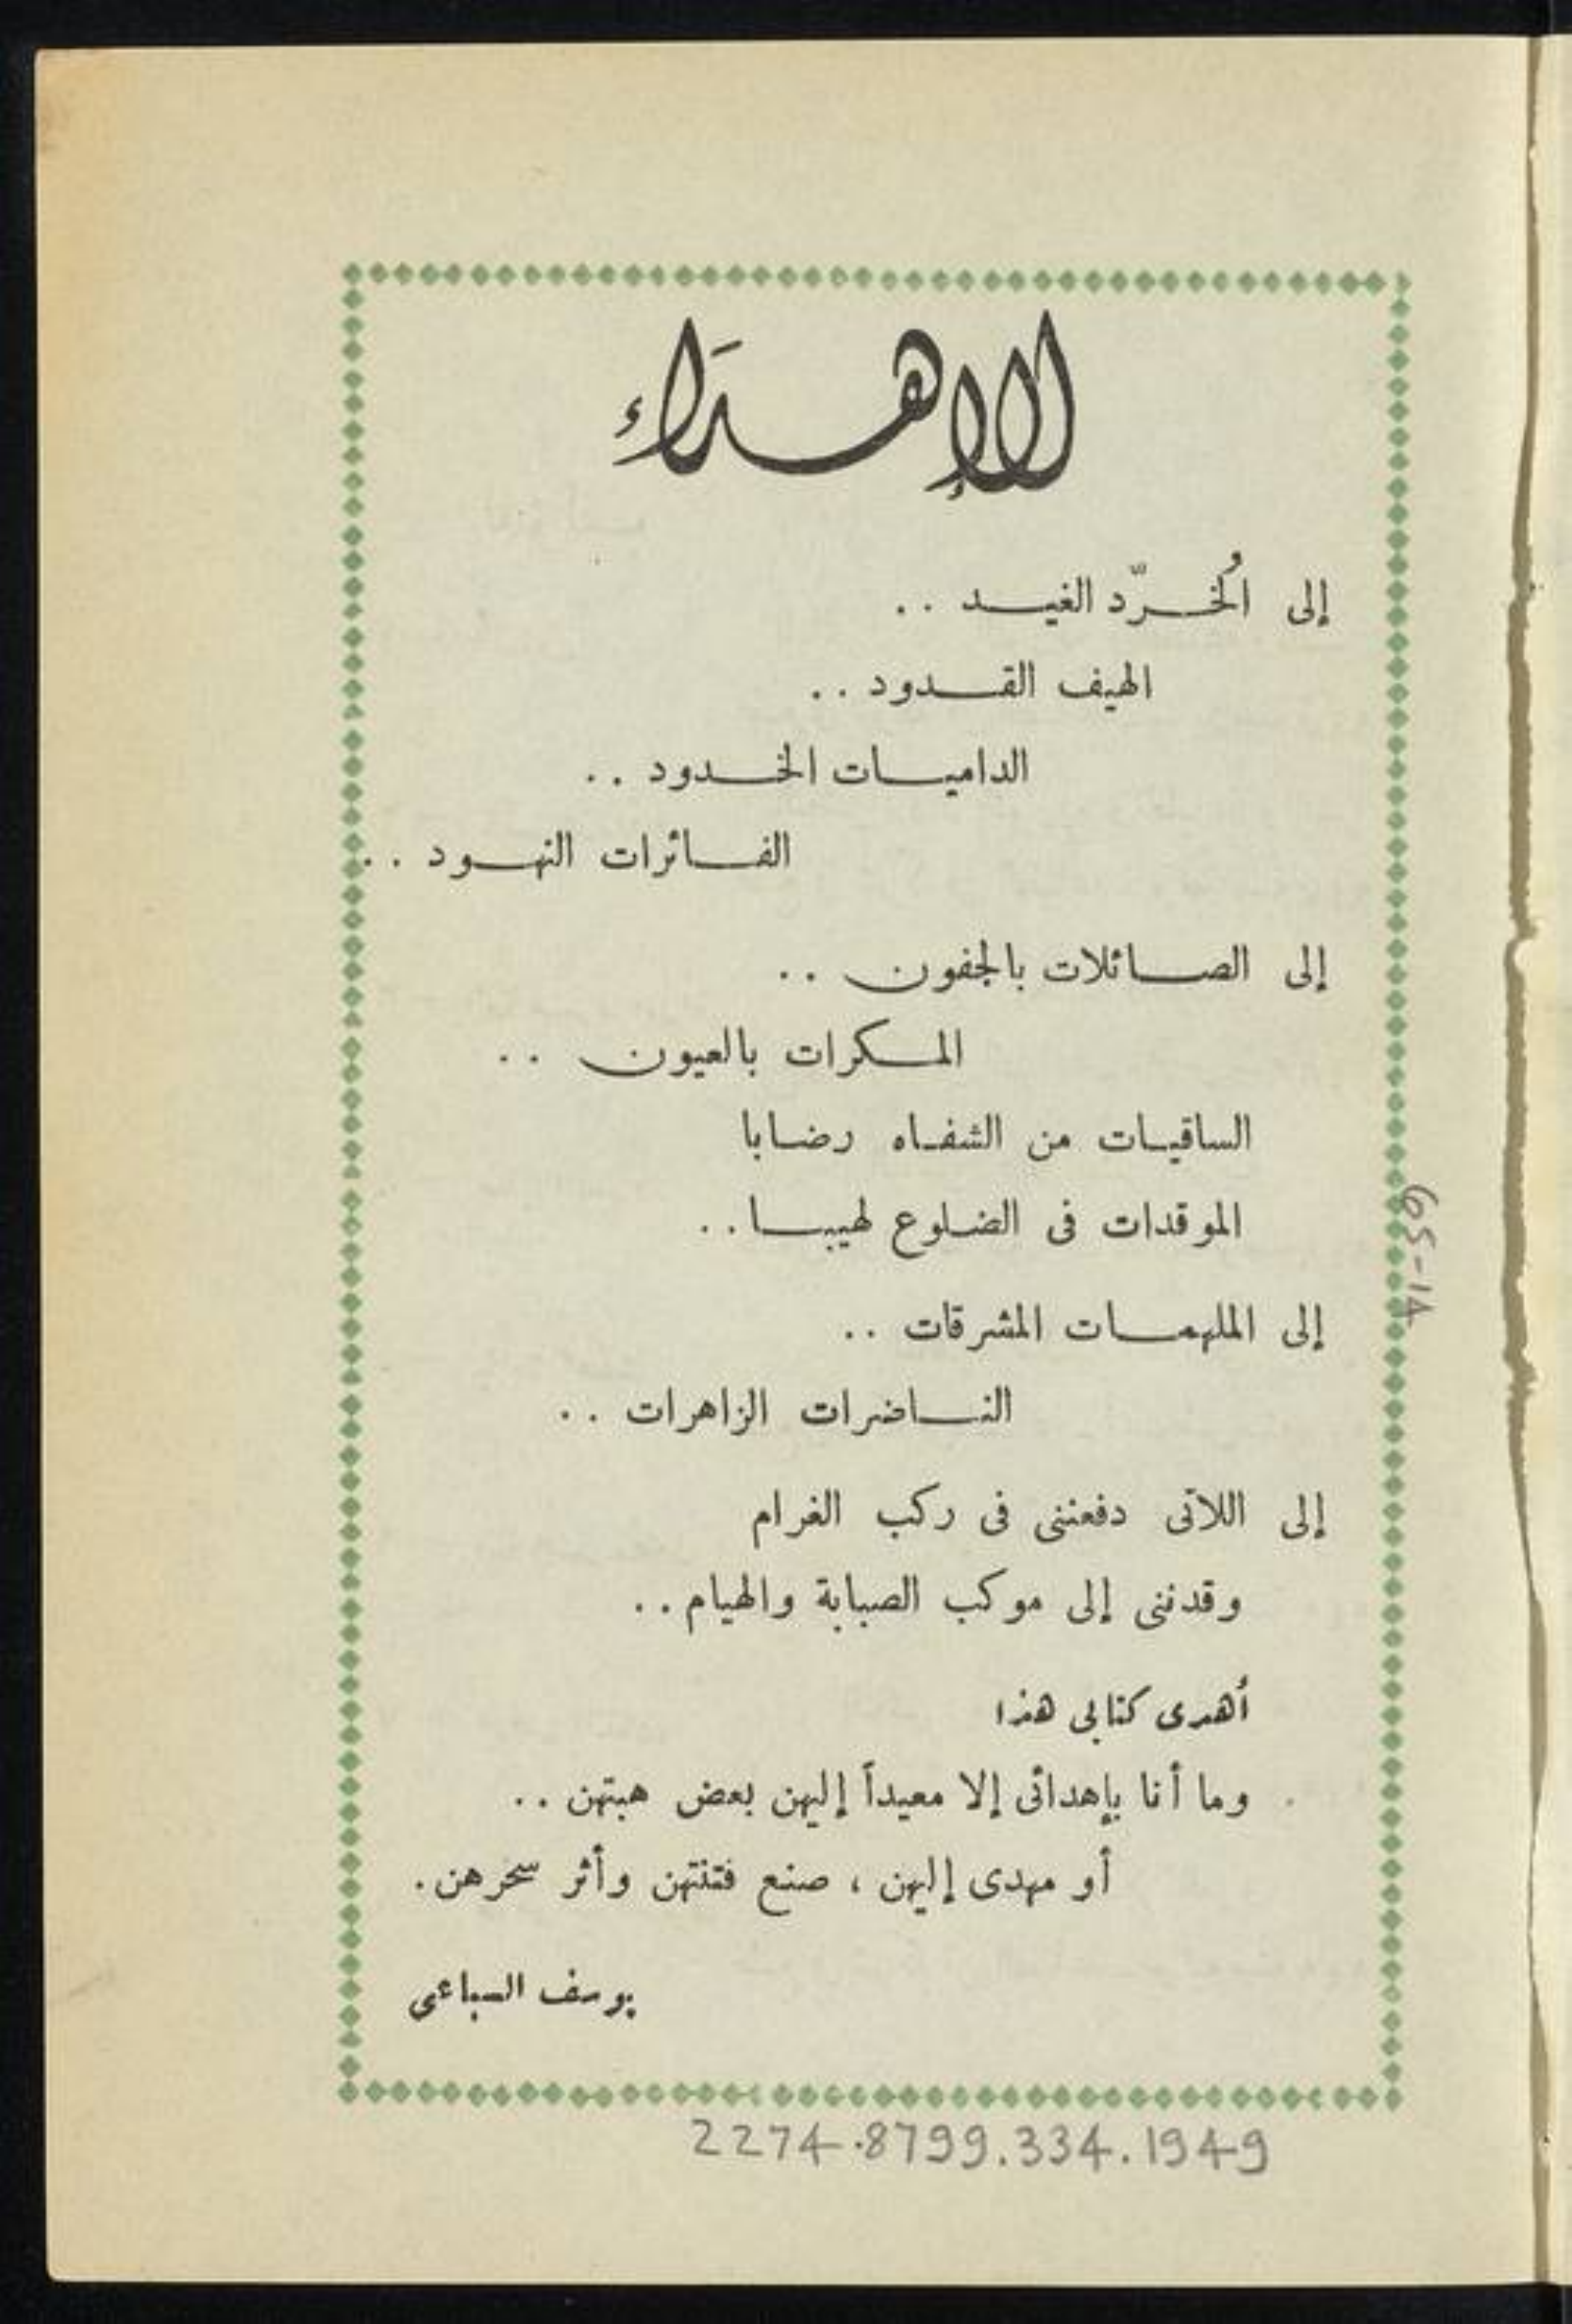 الإهداء
إلى الخُرّد الغيد ..
الهيف القدود ..
الداميات الخدود ..
الفائرات النهود ..
إلى الصائلات بالجفون ..
المسكرات بالعيون ..
الساقيات من الشفاه رضابا
الموقدات فى الضلوع لهيبا ..
إلى الملهمات المشرقات ..
الناضرات الزاهرات ..
إلى اللاتى دفعننى فى ركب الغرام
وقدننى إلى موكب الصبابة والهيام ..
أهدى كتابى هذا
وما أنا بإهدائى إلا معيداً إليهن بعض هبتهن ..
أو مهدى إليهن ، صنع فتنتهن وأثر سحرهن .
يوسف السباعى
2274.8799.334.1949